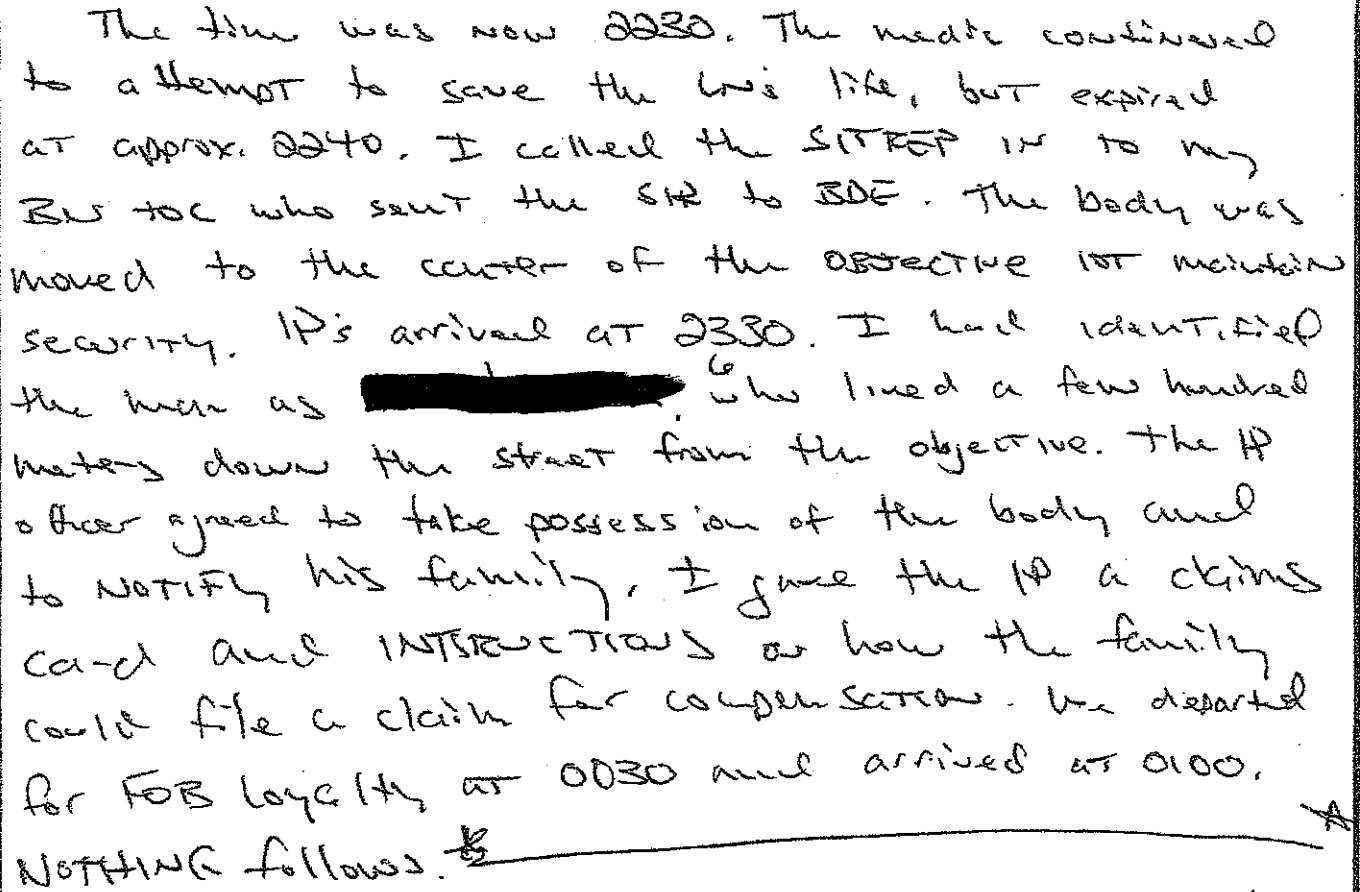 The time was now 2230. The medic continued
to attempt to save the LN's life, but expired
at approx. 2240. I called the SITREP in to my
BN TOC who sent the SIR to BDE. The body was
moved to the center of the objective IOT maintain
security. IP's arrived at 2330. I had identified
the man as 6 who lived a few hundred
meters down the street from the objective. The IP
officer agreed to take possession of the body and
to NOTIFY his family. I gave the IP a claims
card and INSTRUCTIONS on how the family
could file a claim for compensation. We departed
for FOB Loyalty at 0030 and arrived at 0100.
NOTHING follows.